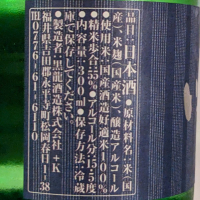 品目:日本酒 ●原材料名:米(国
産)、米麹(国産米)、醸造アルコール
●原料米:国産酒造好適米100%
精米歩合:55% ●アルコール分:15.5度
●内容量:300ml ●保存方法:冷蔵
庫で保存してください。
●製造者:黒龍酒造株式会社 +K
福井県吉田郡永平寺町松岡春日1-38
TEL0776-61-6110